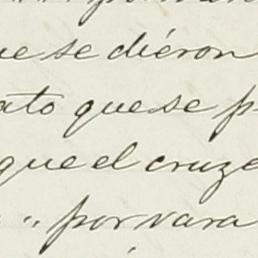 se diéron
que se
que el cruze
" por vara